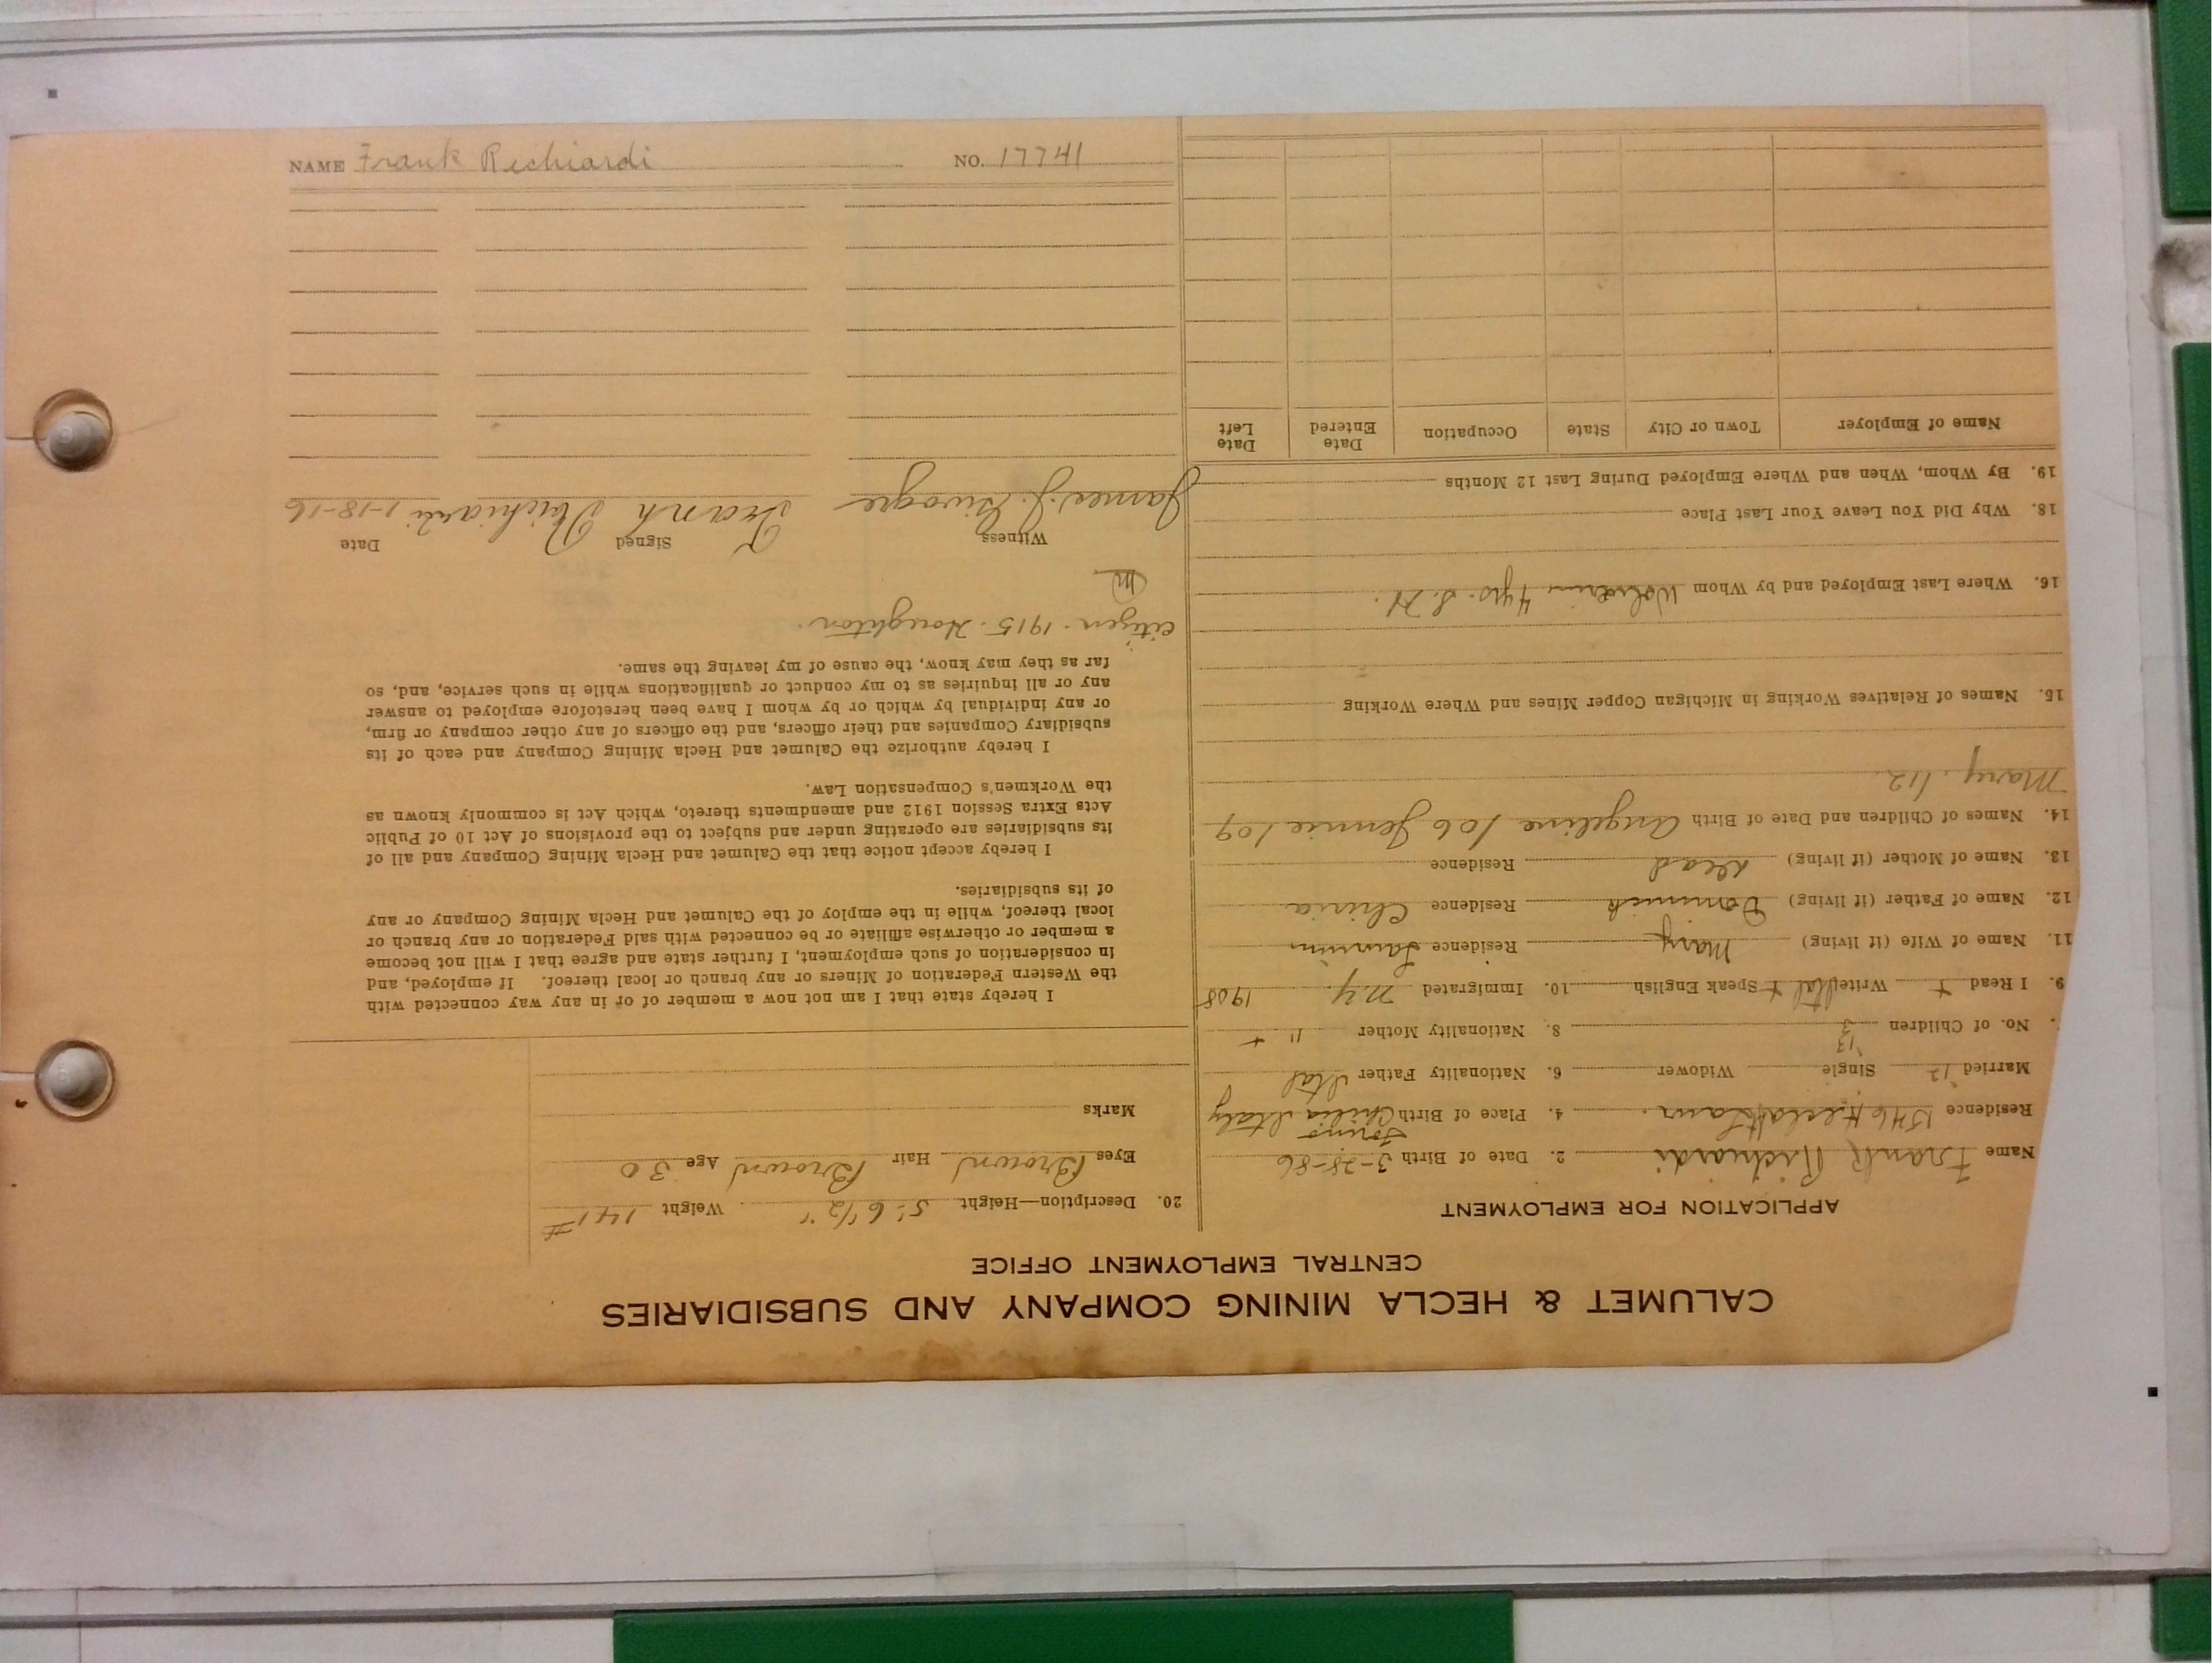 NAME Frank Richiardi NO. 17741
CALUMET & HECLA MINING COMPANY AND SUBSIDIARIES
CENTRAL EMPLOYMENT OFFICE
APPLICATION FOR EMPLOYMENT
Name Frank Richiardi 2. Date of Birth 3-28-86
Torino
Residence 1546 Hecla St Laur. 4. Place of Birth Chiria Italy
Married '12 Single Widower 6. Nationality Father Ital
'13
No. of Children 3 8. Nationality Mother "
9. I Read + Write Ital + Speak English 10. Immigrated N.Y. 1908
11. Name of Wife (if living) Mary Residence Laurium
12. Name of Father (if living) Dominick Residence Chiria
13. Name of Mother (if living) dead Residence
14. Names of Children and Date of Birth Angeline /06 Jennie /09
Mary. /12.
15. Names of Relatives Working in Michigan Copper Mines and Where Working
16. Where Last Employed and by Whom Wolverine 4 yrs.
18. Why Did You Leave Your Last Place
19. By Whom, When and Where Employed During Last 12 Months
Name of Employer Town or City State Occupation Date Entered Date Left
20. Description—Height 5' 6 1/2" Weight 141 #
Eyes Brown Hair Brown Age 30
Marks
I hereby state that I am not now a member of or in any way connected with
the Western Federation of Miners or any branch or local thereof. If employed, and
in consideration of such employment, I further state and agree that I will not become
a member or otherwise affiliate or be connected with said Federation or any branch or
local thereof, while in the employ of the Calumet and Hecla Mining Company or any
of its subsidiaries.
I hereby accept notice that the Calumet and Hecla Mining Company and all of
its subsidiaries are operating under and subject to the provisions of Act 10 of Public
Acts Extra Session 1912 and amendments thereto, which Act is commonly known as
the Workmen's Compensation Law.
I hereby authorize the Calumet and Hecla Mining Company and each of its
subsidiary Companies and their officers, and the officers of any other company or firm,
or any individual by which or by whom I have been heretofore employed to answer
any or all inquiries as to my conduct or qualifications while in such service, and, so
far as they may know, the cause of my leaving the same.
Citizen. 1915. Houghton.
Witness Signed Date
James J. Frank Richiardi 1-18-16